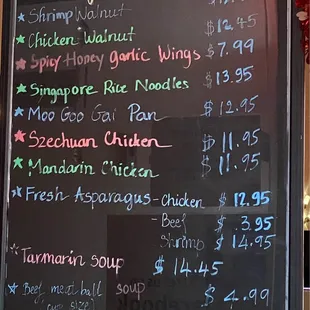 Shrimp Walnut $12.45
Chicken Walnut
Spicy Honey Garlic Wings $7.99
Singapore Rice Noodles $13.95
Moo Goo Gai Pan $12.95
Szechuan Chicken $11.95
Mandarin Chicken $11.95
Fresh Asparagus - Chicken $12.95
- Beef $3.95
Shrimp $14.95
Tarmarin soup $14.45
Beef meat ball soup $4.99